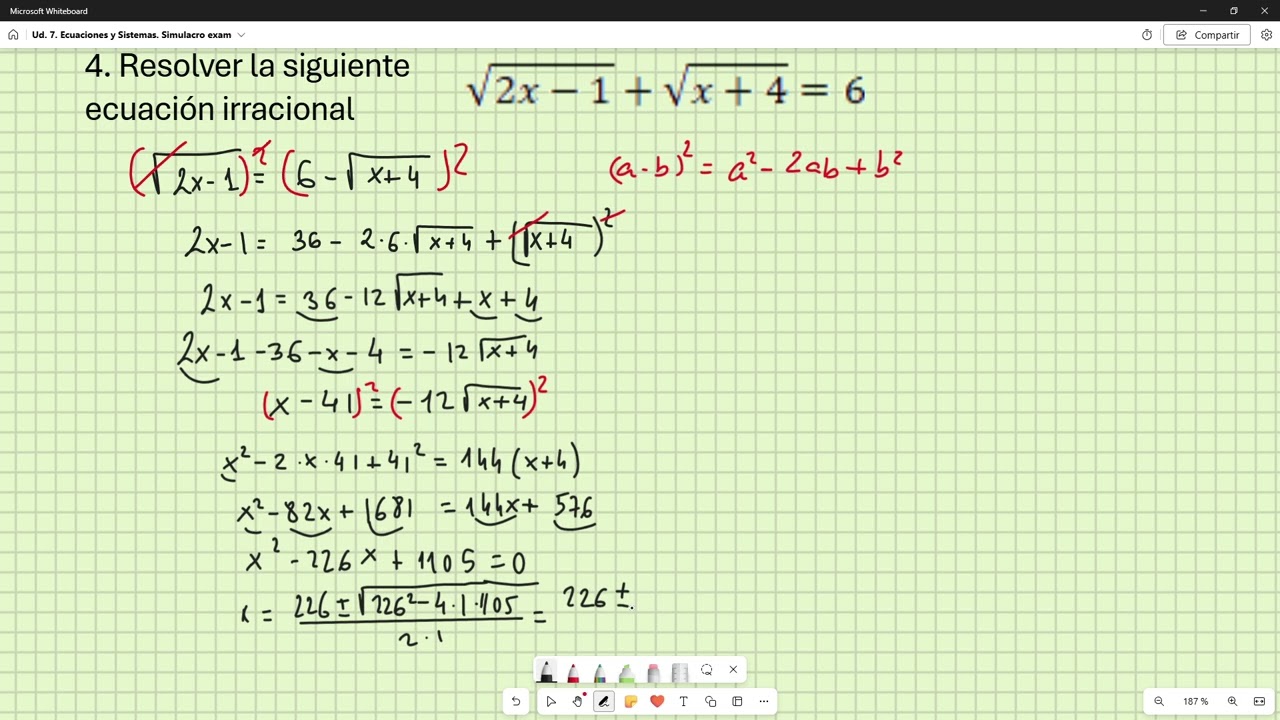 Microsoft Whiteboard
Ud. 7. Ecuaciones y Sistemas. Simulacro exam
Compartir
4. Resolver la siguiente
ecuación irracional
√(2x − 1) + √(x + 4) = 6
(√(2x-1))² = (6 - √(x+4))²
(a-b)² = a² - 2ab + b²
2x-1 = 36 - 2·6·√(x+4) + (√(x+4))²
2x-1 = 36 - 12√(x+4) + x + 4
2x-1-36-x-4 = -12√(x+4)
(x-41)² = (-12√(x+4))²
x² - 2·x·41 + 41² = 144(x+4)
x² - 82x + 1681 = 144x + 576
x² - 226x + 1105 = 0
x = (226 ± √(226² - 4·1·1105)) / (2·1) = 226 ±
187 %